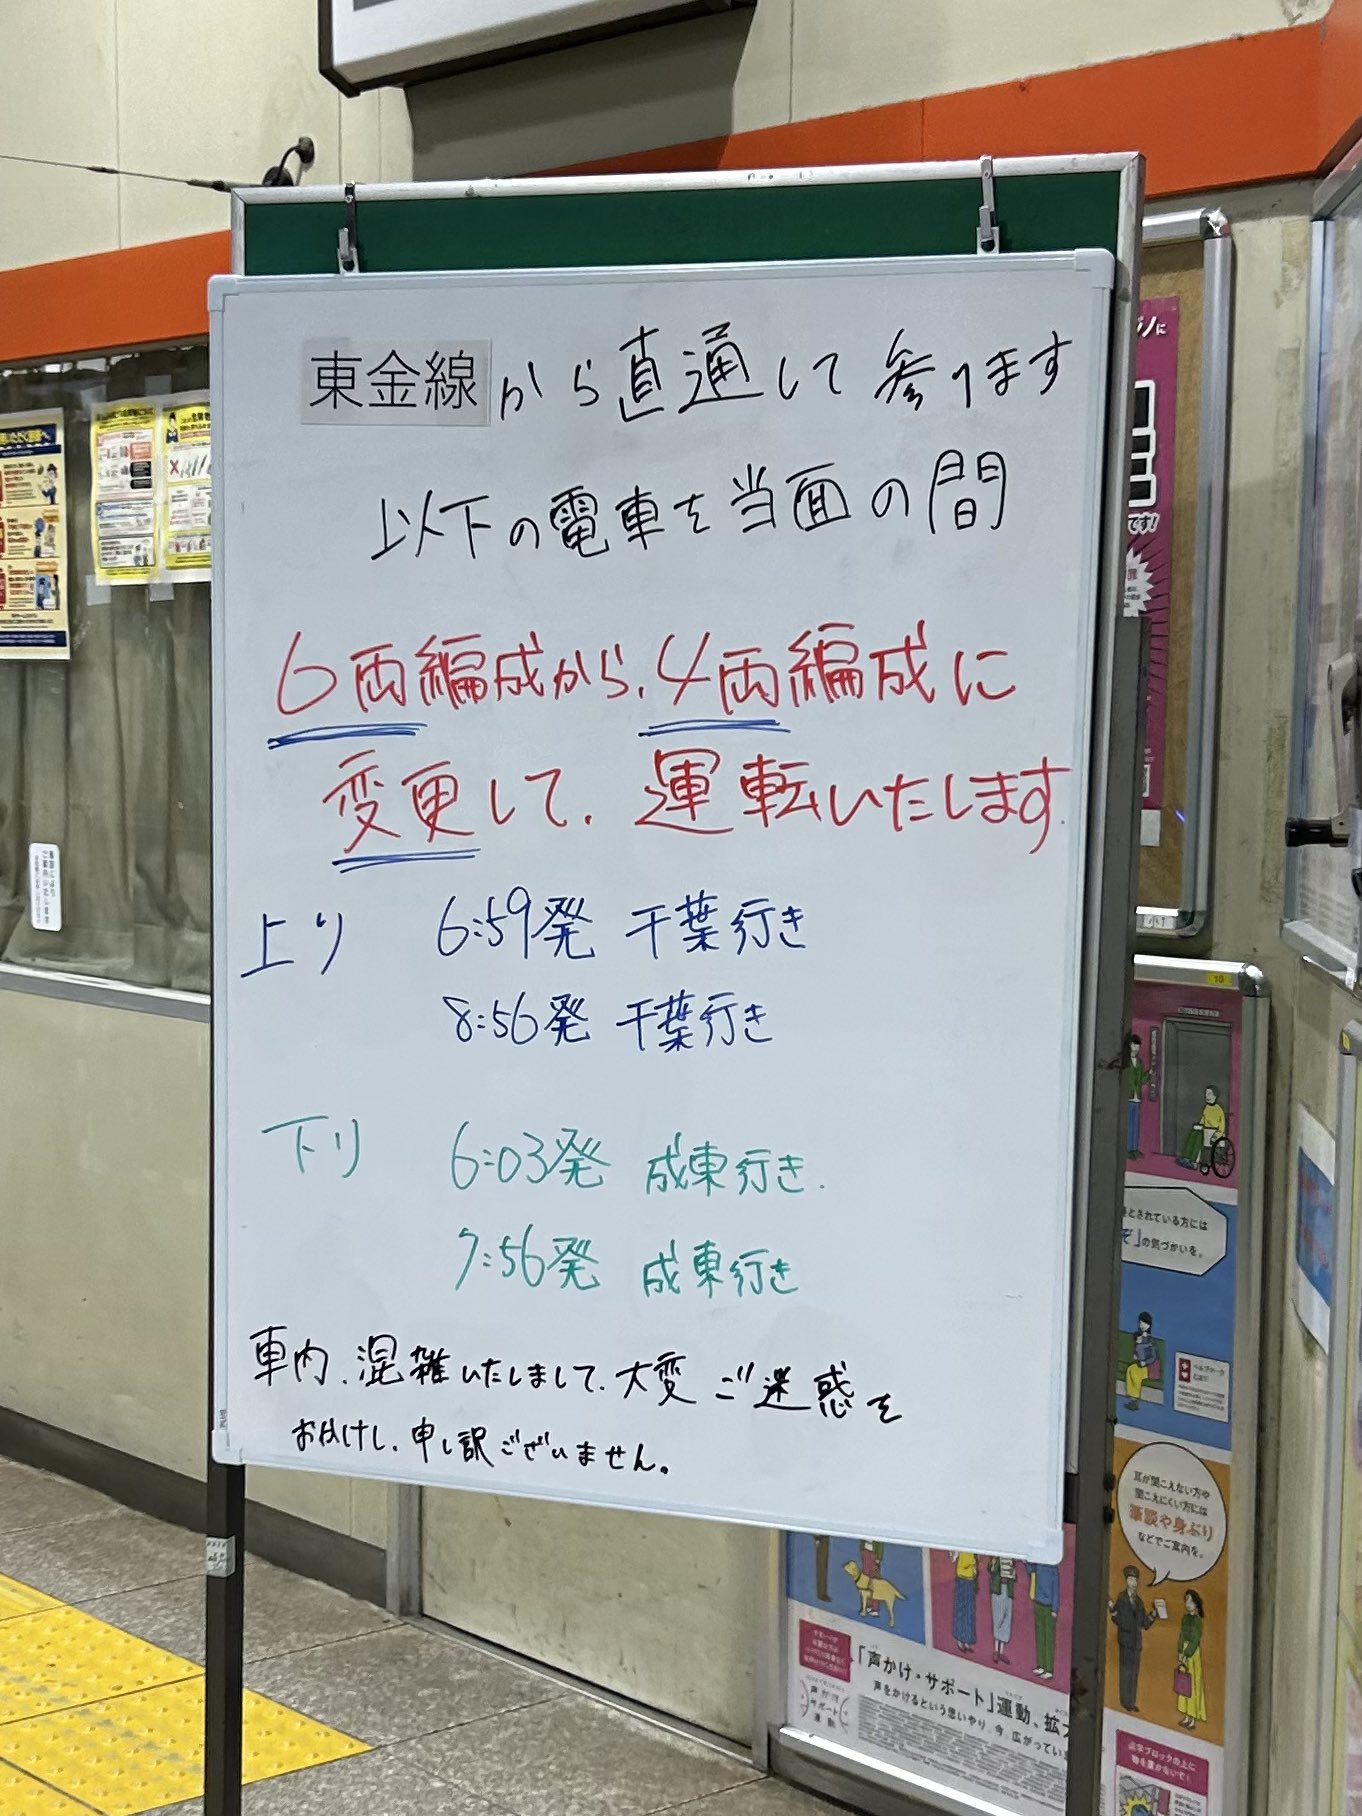 東金線から直通して参ります
以下の電車を当面の間
6両編成から、4両編成に
変更して、運転いたします。
上り 6:59発 千葉行き
8:56発 千葉行き
下り 6:03発 成東行き.
7:56発 成東行き
車内、混雑いたしまして、大変ご迷惑を
おかけし、申し訳ございません。
PLUS
です!
とされている方には
ぞ」の気づかいを。
耳が聞こえない方や
聞こえにくい方には
筆談や身ぶり
などでご案内を。
「声かけ・サポート」運動、拡
声をかけるという思いやり、今、広がってい
点字ブロックの上に
物を置かないで!